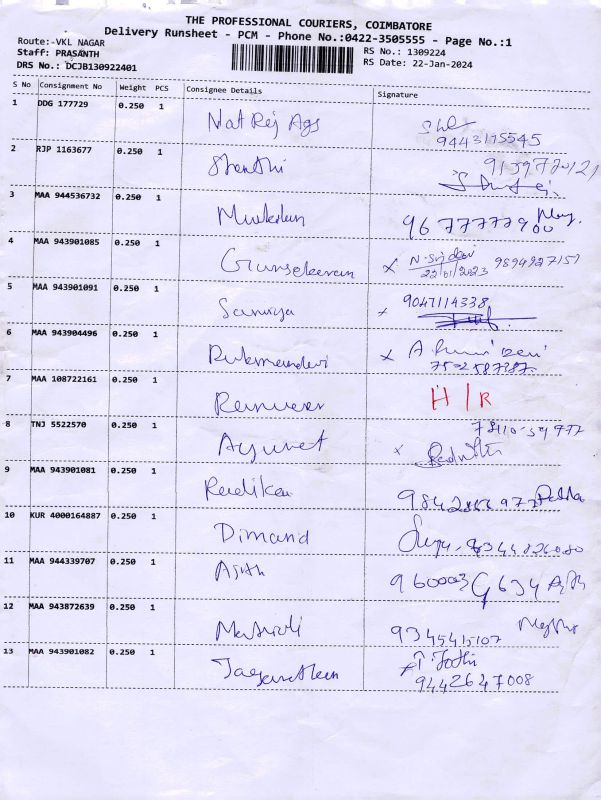 THE PROFESSIONAL COURIERS, COIMBATORE
Delivery Runsheet - PCM - Phone No.:0422-3505555 - Page No.:1
Route:-VKL NAGAR
Staff: PRASANTH
DRS No.: DCJB130922401
RS No.: 1309224
RS Date: 22-Jan-2024
S No Consignment No Weight PCS Consignee Details Signature
1 DDG 177729 0.250 1 Nat Rej Ags
9443175545
2 RJP 1163677 0.250 1 Shanthi
3 MAA 944536732 0.250 1
4 MAA 943901085 0.250 1 Gunsekaran x N. Sridevi
22/01/2023 9894927157
5 MAA 943901091 0.250 1 Saranya x 9047114338
6 MAA 943904496 0.250 1 Rukmandevi x
7 MAA 108722161 0.250 1 H/R
8 TNJ 5522570 0.250 1 x
9 MAA 943901081 0.250 1 Radika
10 KUR 4000164887 0.250 1 Dimand
11 MAA 944339707 0.250 1 Ajith
12 MAA 943872639 0.250 1 9345415107
13 MAA 943901082 0.250 1 Jothi
9442647008